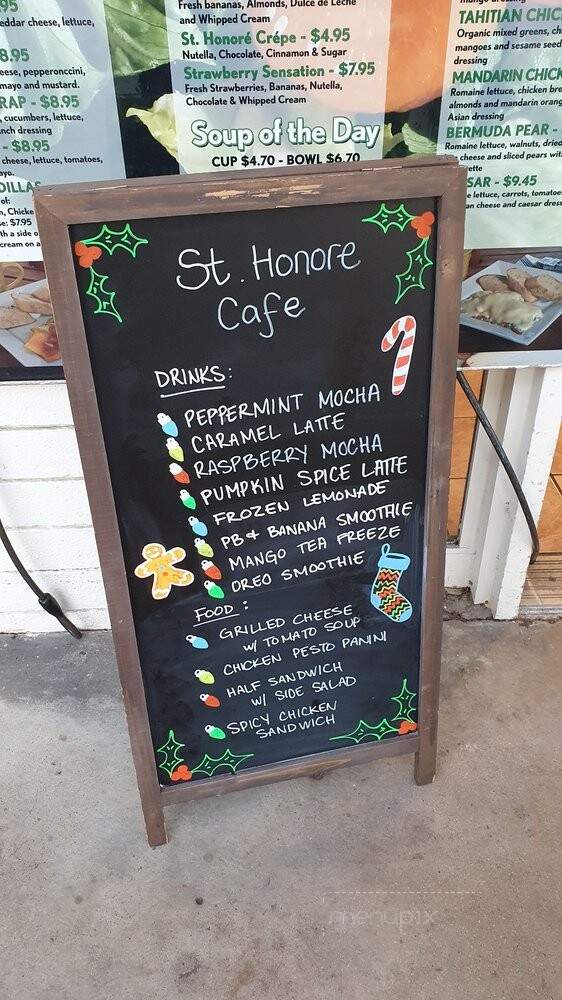 95
eddar cheese, lettuce,
8.95
eese, pepperonccini,
mayo and mustard.
RAP - $8.95
, cucumbers, lettuce,
nch dressing
- $8.95
cheese, lettuce, tomatoes,
ayo.
DILLAS
of:
n, Chicke
se: $7.95
th a side o
cream on a
Fresh bananas, Almonds, Dulce de Leche
and Whipped Cream
St. Honoré Crépe - $4.95
Nutella, Chocolate, Cinnamon & Sugar
Strawberry Sensation - $7.95
Fresh Strawberries, Bananas, Nutella,
Chocolate & Whipped Cream
Soup of the Day
CUP $4.70 - BOWL $6.70
mango dressing
TAHITIAN CHIC
Organic mixed greens, ch
mangoes and sesame seed
dressing
MANDARIN CHICK
Romaine lettuce, chicken bre
almonds and mandarin orang
Asian dressing
BERMUDA PEAR -
Romaine lettuce, walnuts, dried
cheese and sliced pears wit
ette
SAR - $9.45
e lettuce, carrots, tomatoe
an cheese and caesar dress
St. Honore
Cafe
DRINKS:
PEPPERMINT MOCHA
CARAMEL LATTE
RASPBERRY MOCHA
PUMPKIN SPICE LATTE
FROZEN LEMONADE
PB + BANANA SMOOTHIE
MANGO TEA FREEZE
OREO SMOOTHIE
FOOD:
GRILLED CHEESE
w/ TOMATO SOUP
CHICKEN PESTO PANINI
HALF SANDWICH
W/ SIDE SALAD
SPICY CHICKEN
SANDWICH
menupix